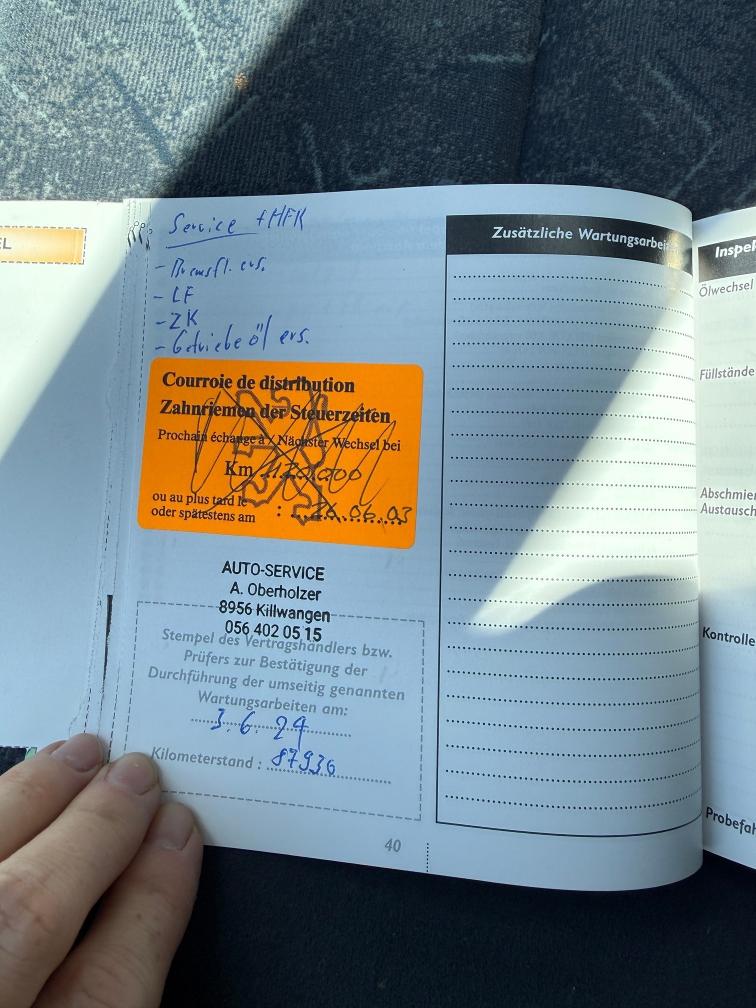 EL
Service + MFK
- Bremsfl. ers.
- LF
- ZK
- Getriebeöl ers.
Courroie de distribution
Zahnriemen der Steuerzeiten
Prochain échange à / Nächster Wechsel bei
Km 120.000
ou au plus tard le
oder spätestens am : 26.06.03
AUTO-SERVICE
A. Oberholzer
8956 Killwangen
056 402 05 15
Stempel des Vertragshändlers bzw.
Prüfers zur Bestätigung der
Durchführung der umseitig genannten
Wartungsarbeiten am:
3.6.24
Kilometerstand : 87936
40
Zusätzliche Wartungsarbei
Inspek
Ölwechsel
Füllstände
Abschmier
Austausch
Kontrolle
Probefah